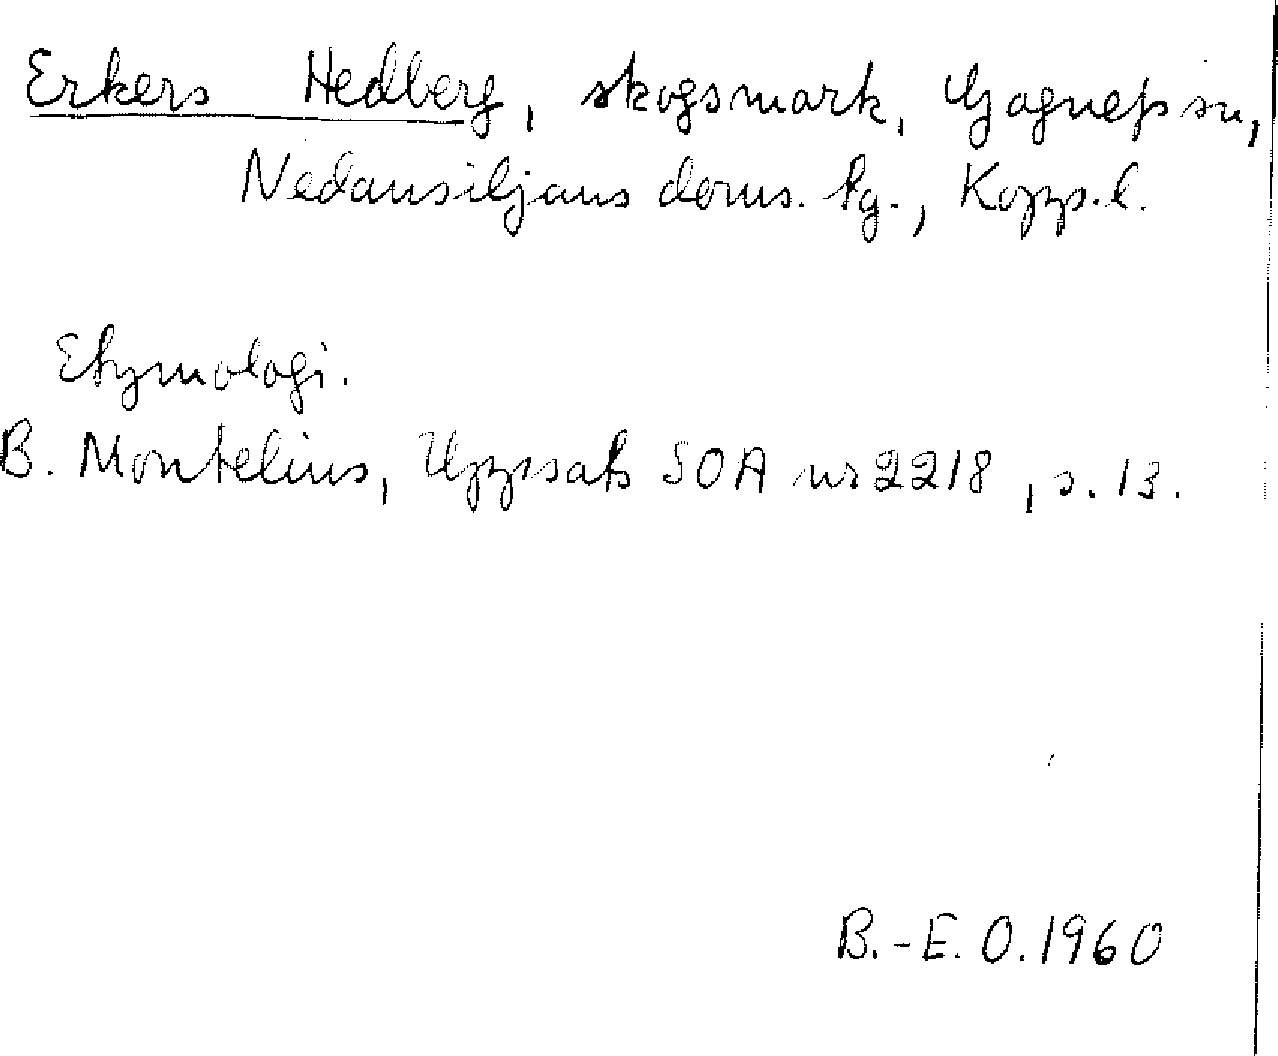 Erkers Hedberg, skogsmark, Gagnefs sn,
Nedansiljans doms. tg., Kopp.l.
Etymologi.
B. Montelius, Uppsats SOA nr 2218, s. 13.
B.-E. O. 1960